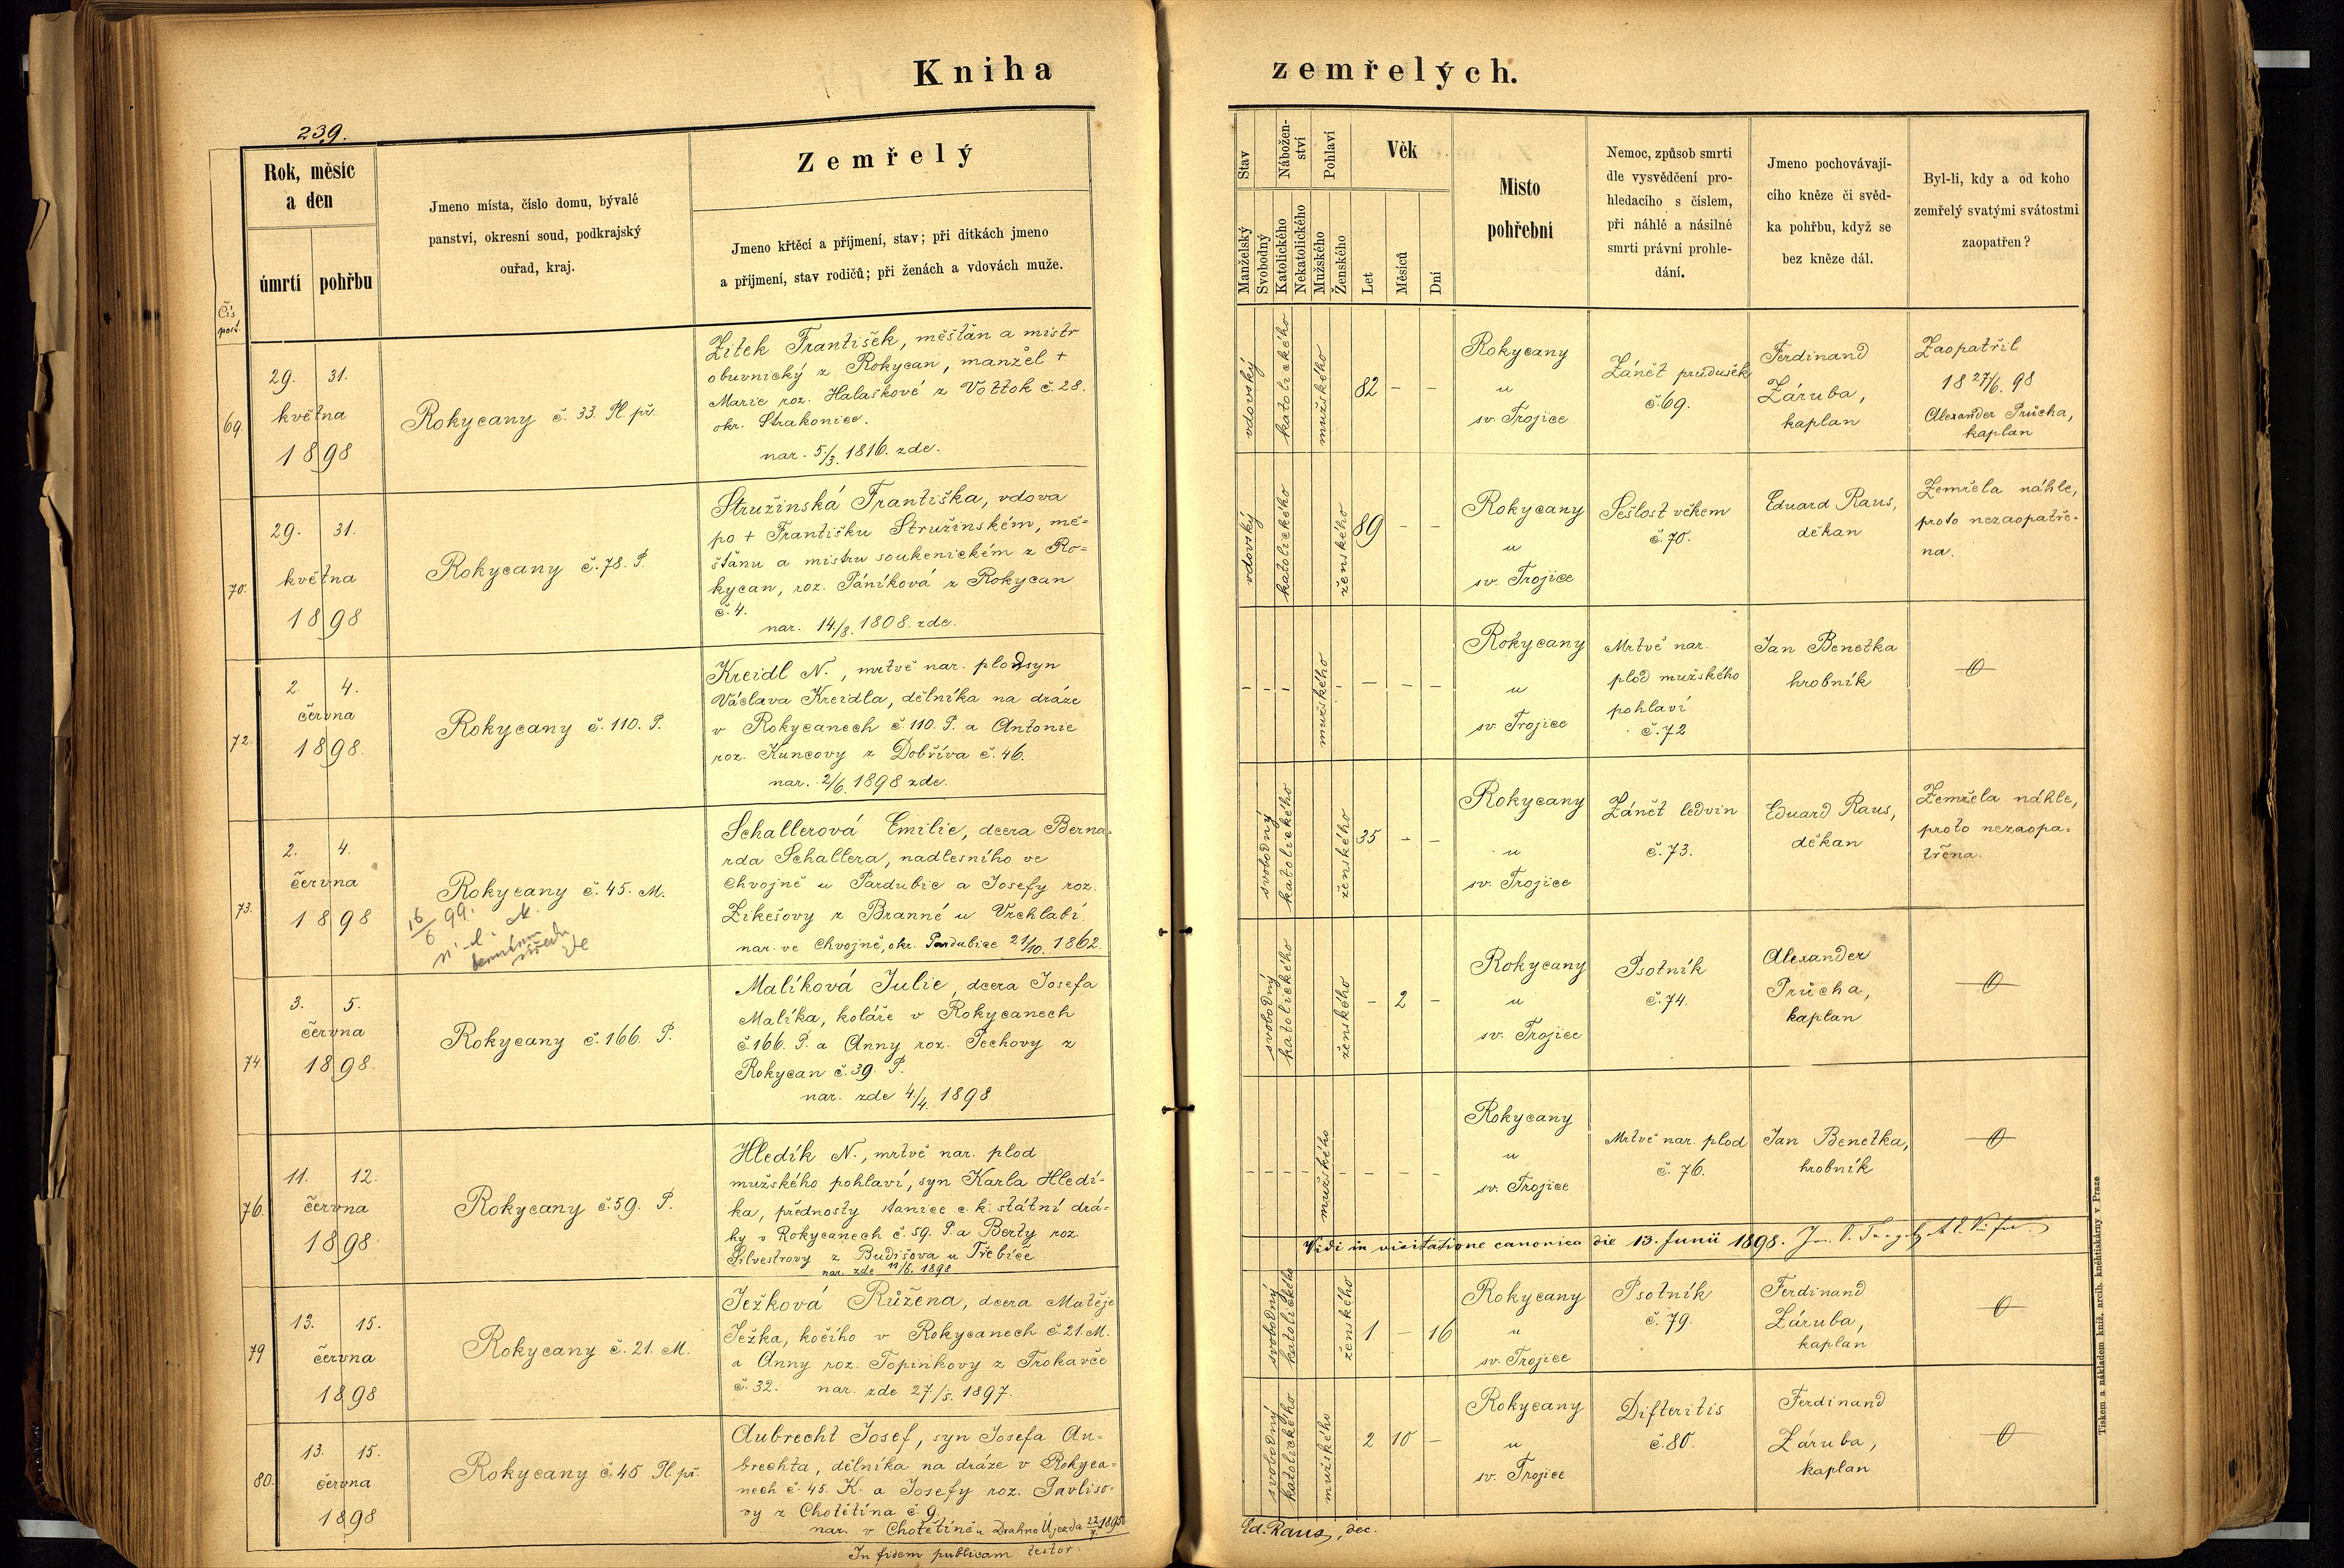 Kniha zemřelých.
239.
Čís. post.
Rok, měsíc a den
úmrtí
pohřbu
Jmeno místa, číslo domu, bývalé
panství, okresní soud, podkrajský
ouřad, kraj.
Zemřelý
Jmeno křtěcí a příjmení, stav; při dítkách jmeno
a příjmení, stav rodičů; při ženách a vdovách muže.
Stav
Manželský
Svobodný
Nábožen-
ství
Katolického
Nekatolického
Pohlaví
Mužského
Ženského
Věk
Let
Měsíců
Dní
Místo
pohřební
Nemoc, způsob smrti
dle vysvědčení pro-
hledacího s číslem,
při náhlé a násilné
smrti právní prohle-
dání.
Jmeno pochovávají-
cího kněze či svěd-
ka pohřbu, když se
bez kněze dál.
Byl-li, kdy a od koho
zemřelý svatými svátostmi
zaopatřen?
69.
29. 31.
května
1898
Rokycany č. 33. Pl. př.
Zitek František, měšťan a mistr
obuvnický z Rokycan, manžel +
Marie roz. Halaškové z Vottok č. 28.
okr. Strakonice.
nar. 5./3. 1816. zde.
vdovský
katolického
mužského
82 - -
Rokycany
u
sv. Trojice
Zánět průdušek
č. 69.
Ferdinand
Záruba,
kaplan
Zaopatřil
18 27/6. 98
Alexander Průcha,
kaplan
70.
29. 31.
května
1898
Rokycany č. 78. P.
Stružinská Františka, vdova
po + Františku Stružinském, mě-
šťanu a mistru soukenickém z Ro-
kycan, roz. Páníková z Rokycan
č. 4.
nar. 14./8. 1808. zde.
vdovský
katolického
ženského
89 - -
Rokycany
u
sv. Trojice
Sešlost věkem
č. 70.
Eduard Raus,
děkan
Zemřela náhle,
proto nezaopatře-
na.
72.
2. 4.
června
1898.
Rokycany č. 110. P.
Kreidl N., mrtvě nar. plod syn
Václava Kreidla, dělníka na dráze
v Rokycanech č. 110. P. a Antonie
roz. Kuncovy z Dobříva č. 46.
nar. 2/6. 1898 zde.
- - - mužského - - - -
Rokycany
u
sv. Trojice
Mrtvě nar.
plod mužského
pohlaví
č. 72
Jan Benetka
hrobník
73.
2. 4.
června
1898
Rokycany č. 45. M.
16/6 99.
Schallerová Emilie, dcera Berna-
rda Schallera, nadlesního ve
Chvojně u Pardubic a Josefy roz.
Zikešovy z Branné u Vrchlabí.
nar. ve Chvojně, okr. Pardubice 21/10. 1862.
svobodný
katolického
ženského
35 - -
Rokycany
u
sv. Trojice
Zánět ledvin
č. 73.
Eduard Raus,
děkan
Zemřela náhle,
proto nezaopa-
třena.
74.
3. 5.
června
1898.
Rokycany č. 166. P.
Malíková Julie, dcera Josefa
Malíka, koláře v Rokycanech
č. 166. P. a Anny roz. Pechovy z
Rokycan č. 39. P.
nar. zde 4./4. 1898
svobodný
katolického
ženského
- 2 -
Rokycany
u
sv. Trojice
Psotník
č. 74.
Alexander
Průcha,
kaplan
76.
11. 12.
června
1898.
Rokycany č. 59. P.
Hledík N., mrtvě nar. plod
mužského pohlaví, syn Karla Hledí-
ka, přednosty stanice c. k. státní drá-
hy v Rokycanech č. 59. P. a Berty roz.
Silvestrovy z Budišova u Třebíče
nar. zde 11/6. 1898
- - - - mužského - - - -
Rokycany
u
sv. Trojice
Mrtvě nar. plod
č. 76.
Jan Benetka,
hrobník
Vidi in visitatione canonica die 13. Junii 1898.
79
13. 15.
června
1898
Rokycany č. 21. M.
Ježková Růžena, dcera Matěje
Ježka, kočího v Rokycanech č. 21. M.
a Anny roz. Topinkovy z Trokavče
č. 32. nar. zde 27./5. 1897.
svobodný
katolického
ženského
1 - 16
Rokycany
u
sv. Trojice
Psotník
č. 79.
Ferdinand
Záruba,
kaplan
80.
13. 15.
června
1898
Rokycany č. 45 Pl. př.
Aubrecht Josef, syn Josefa Au-
brechta, dělníka na dráze v Rokyca-
nech č. 45. K. a Josefy roz. Pavliso-
vy z Chotětína č. 9.
nar. v Chotětíně u Drahno Újezda 22/7. 1895
svobodný
katolického
mužského
2 10 -
Rokycany
u
sv. Trojice
Difteritis
č. 80.
Ferdinand
Záruba,
kaplan
In fidem publicam testor:
Ed. Raus, dec.
Tiskem a nákladem kníž. arcib. knihtiskárny v Praze